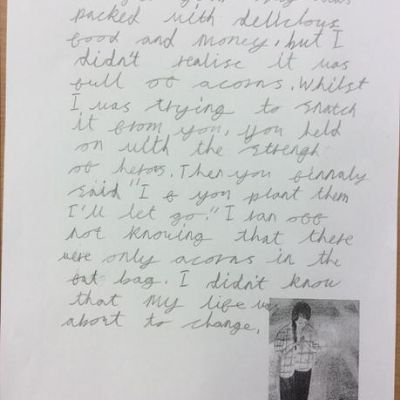 packed with delicious
food and money, but I
didn't realise it was
full of acorns. Whilst
I was trying to snatch
it from you, you held
on with the strengh
of heros. Then you finnaly
said "If you plant them
I'll let go." I ran off
not knowing that there
were only acorns in the
bag. I didn't know
that my life was
about to change.